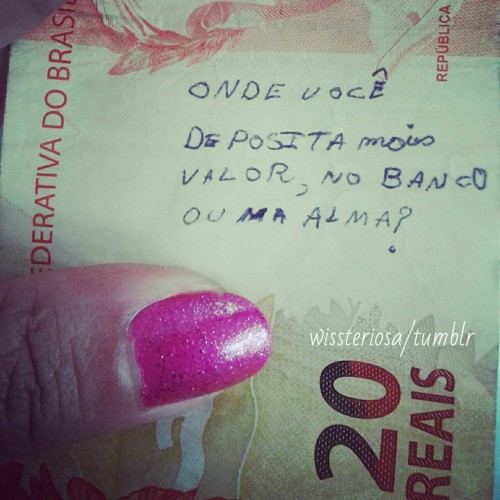 DERATIVA DO BRASIL
REPÚBLICA
ONDE VOCÊ
DEPOSITA mais
VALOR, NO BANCO
OU NA ALMA?
wissteriosa/tumblr
20
REAIS